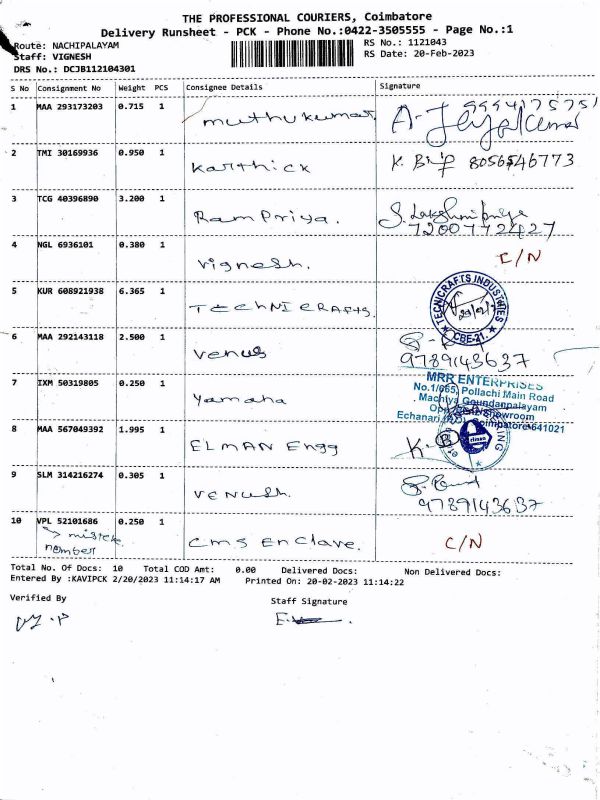 THE PROFESSIONAL COURIERS, Coimbatore
Delivery Runsheet - PCK - Phone No.:0422-3505555 - Page No.:1
Route: NACHIPALAYAM
RS No.: 1121043
Staff: VIGNESH
RS Date: 20-Feb-2023
DRS No.: DCJB112104301
S No Consignment No Weight PCS Consignee Details Signature
1 MAA 293173203 0.715 1 muthukumar 9994175751
2 TMI 30169936 0.950 1 Karthick K. 8056546773
3 TCG 40396890 3.200 1 RamPriya. S. Lakshmipriya
7200772427
4 NGL 6936101 0.380 1 Vignesh. C/N
5 KUR 608921938 6.365 1 TECHNICRAFTS. TECNICRAFTS INDUSTRIES
CBE-21.
6 MAA 292143118 2.500 1 Venus
9789143637
7 IXM 50319805 0.250 1 Yamaha MRR ENTERPRISES
No.1/665, Pollachi Main Road
Machiya Goundanpalayam
Showroom
Echanari Coimbatore-641021
8 MAA 567049392 1.995 1 ELMAN Engg K.
9 SLM 314216274 0.305 1 VENUSh.
9789143637
10 VPL 52101686 0.250 1 CMS Enclave. C/N
number
Total No. Of Docs: 10 Total COD Amt: 0.00 Delivered Docs: Non Delivered Docs:
Entered By :KAVIPCK 2/20/2023 11:14:17 AM Printed On: 20-02-2023 11:14:22
Verified By
Staff Signature